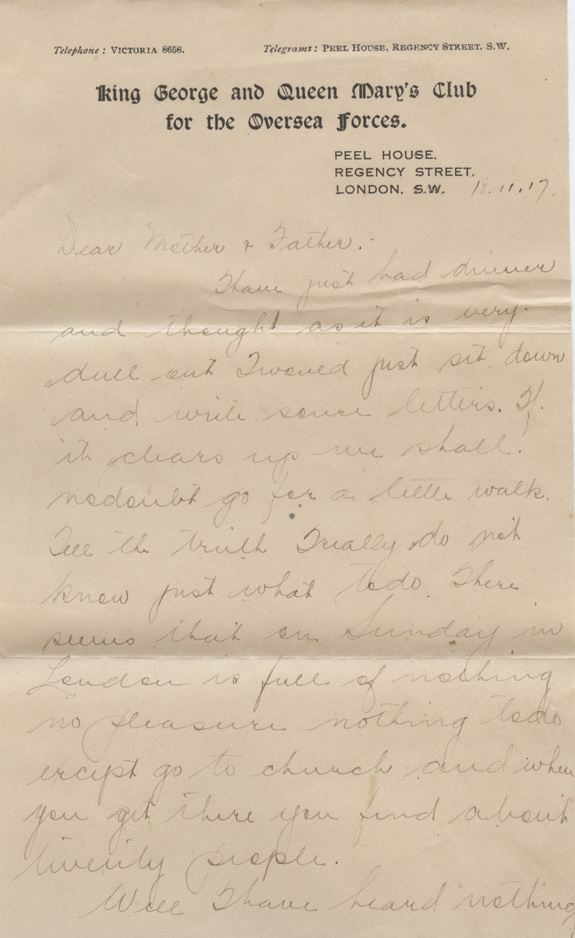 Telephone: VICTORIA 8658. Telegrams: PEEL HOUSE, REGENCY STREET. S.W.
King George and Queen Mary's Club
for the Oversea Forces.
PEEL HOUSE,
REGENCY STREET,
LONDON. S.W. 18.11.17.
Dear Mother & Father:-
I have just had dinner
and thought as it is very
dull out I would just sit down
and write some letters. If
it clears up we shall
nodoubt go for a little walk.
Tell the truth I really do not
know just what todo. There
seems that on Sunday in
London is full of nothing
no pleasure nothing todo
except go to church and when
you get there you find about
twenty people.
Well I have heard nothing